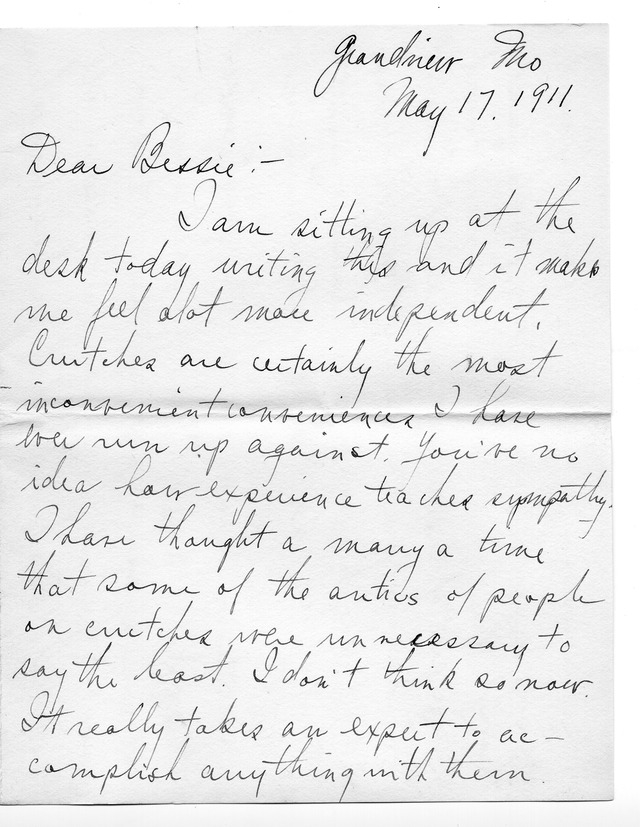 Grandview Mo
May 17, 1911.
Dear Bessie:-
I am sitting up at the
desk today writing this and it makes
me feel alot more independent.
Crutches are certainly the most
inconvenient conveniences I have
ever run up against. You've no
idea how experience teaches sympathy.
I have thought a many a time
that some of the antics of people
on crutches were unnecessary to
say the least. I don't think so now.
It really takes an expert to ac-
complish anything with them.